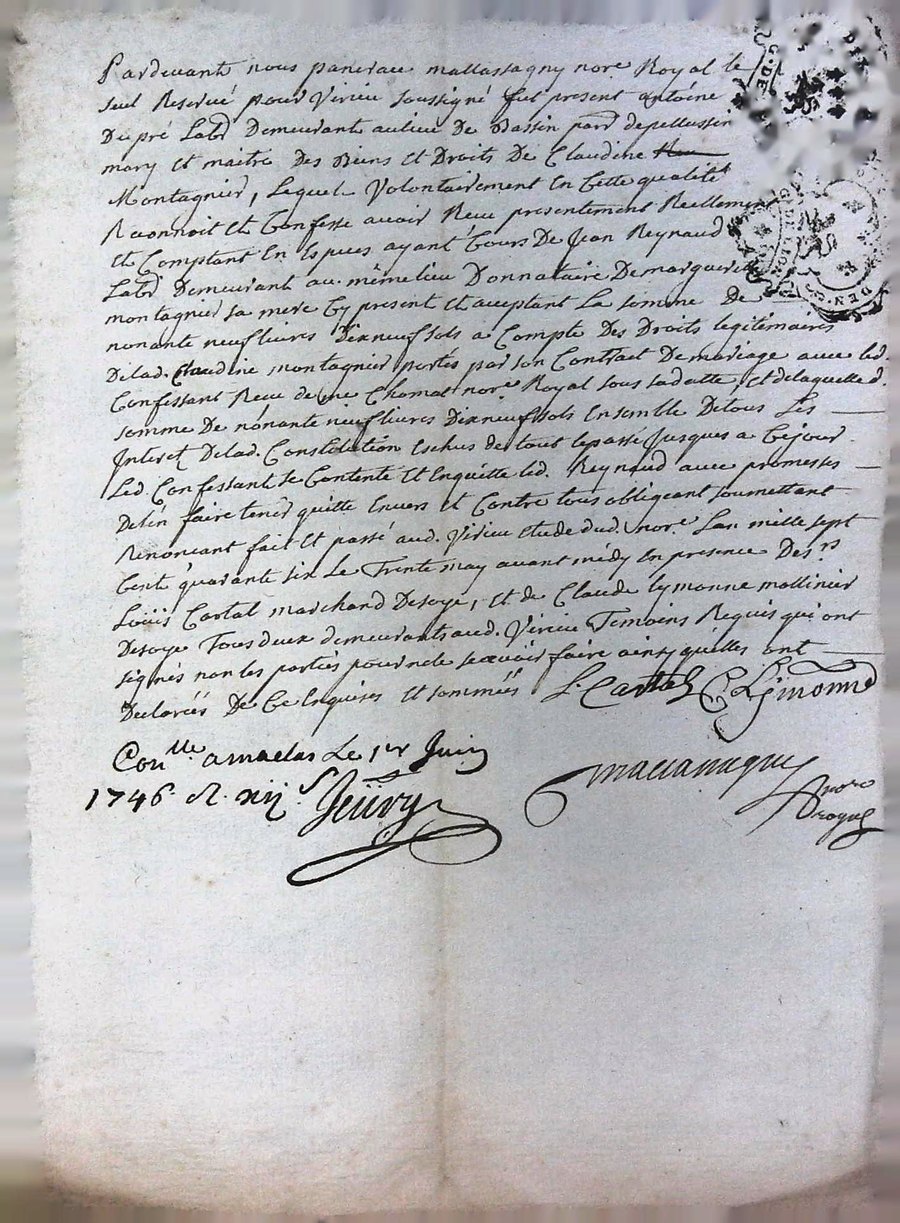 Pardevant nous pancrace mallassagny nore. Royal le
seul Reservé pour Virieu soussigné fut present antoine
Dupré Labr. Demeurant au lieu De Bassin parr. depellussin
mary et maitre Des Biens et Droits De Claudine
Montagnier, Lequel Volontairement En Cette qualité
Reconnoit et Confesse avoir Receu presentement Reellement
Et Comptant En Especes ayant Cours De Jean Reynaud
Labr. Demeurant au mémelieu Donnataire De marguerite
montagnier sa mere Cy present et acceptant La somme De
nonante neuf livres Dixneuf sols a Compte Des Droits legitimaires
Delad. Claudine montagnier portés par son Contract De mariage avec led.
Confessant Receu de me Chomat nore. Royal sous sa datte, et delaquelle d.
somme De nonante neuf livres Dixneuf sols Ensemble De tous Les
Interet Delad. Constitution Eschus de tout le passé Jusques a Cejour
Led Confessant se Contente Et Enquitte led. Reynaud avec promesses
Delén faire tenir quitte Envers et Contre tous obligeant soumettant
Renonçant fait et passé aud. Virieu Etude dud. nore. Lan mille sept
Cent quarante six Le Trente may avant midy En presence Des rs
Loüis Cartal marchand Desoye, et de Claude Lymonne mollinier
Desoye Tous deux demeurants aud. Virieu Temoins Requis qui ont
signés non les parties pour ne le scavoir faire ainsy quélles ont
Declarées De Ce Enquises Et sommées
L. Cartal C. Limonne
Conlle. a maclas Le 1er Juin
1746. R. xij s.
nore
Royal
G. DE LION
DEN.